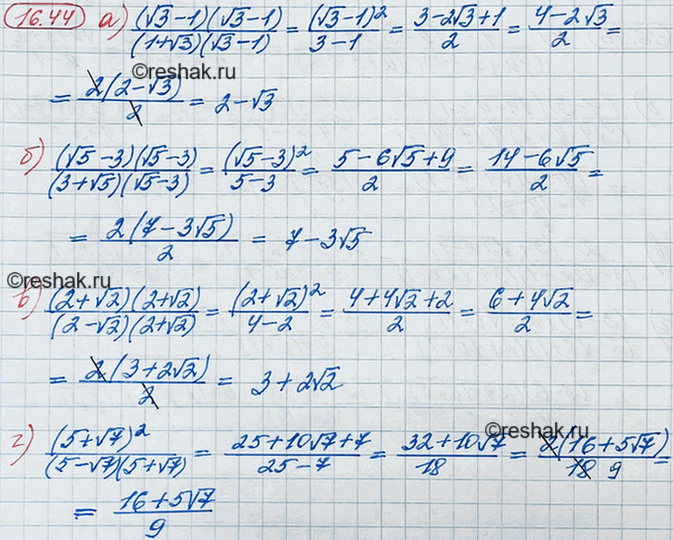 16.44 а) (√3-1)(√3-1)/(1+√3)(√3-1) = (√3-1)²/3-1 = 3-2√3+1/2 = 4-2√3/2 =
©reshak.ru
= 2(2-√3)/2 = 2-√3
б) (√5-3)(√5-3)/(3+√5)(√5-3) = (√5-3)²/5-3 = 5-6√5+9/2 = 14-6√5/2 =
= 2(7-3√5)/2 = 7-3√5
©reshak.ru
в) (2+√2)(2+√2)/(2-√2)(2+√2) = (2+√2)²/4-2 = 4+4√2+2/2 = 6+4√2/2 =
= 2(3+2√2)/2 = 3+2√2
©reshak.ru
г) (5+√7)²/(5-√7)(5+√7) = 25+10√7+7/25-7 = 32+10√7/18 = 2(16+5√7)/18 9 =
= 16+5√7/9